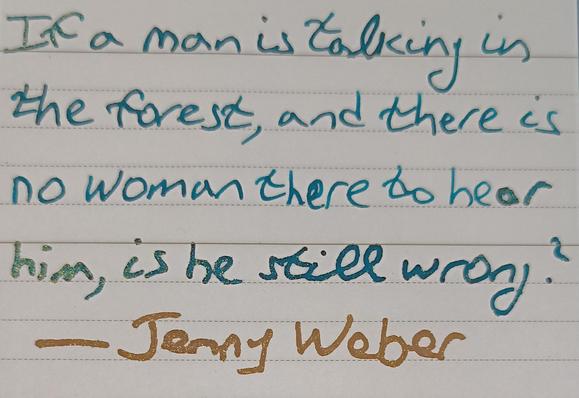 If a man is talking in
the forest, and there is
no woman there to hear
him, is he still wrong?
— Jenny Weber